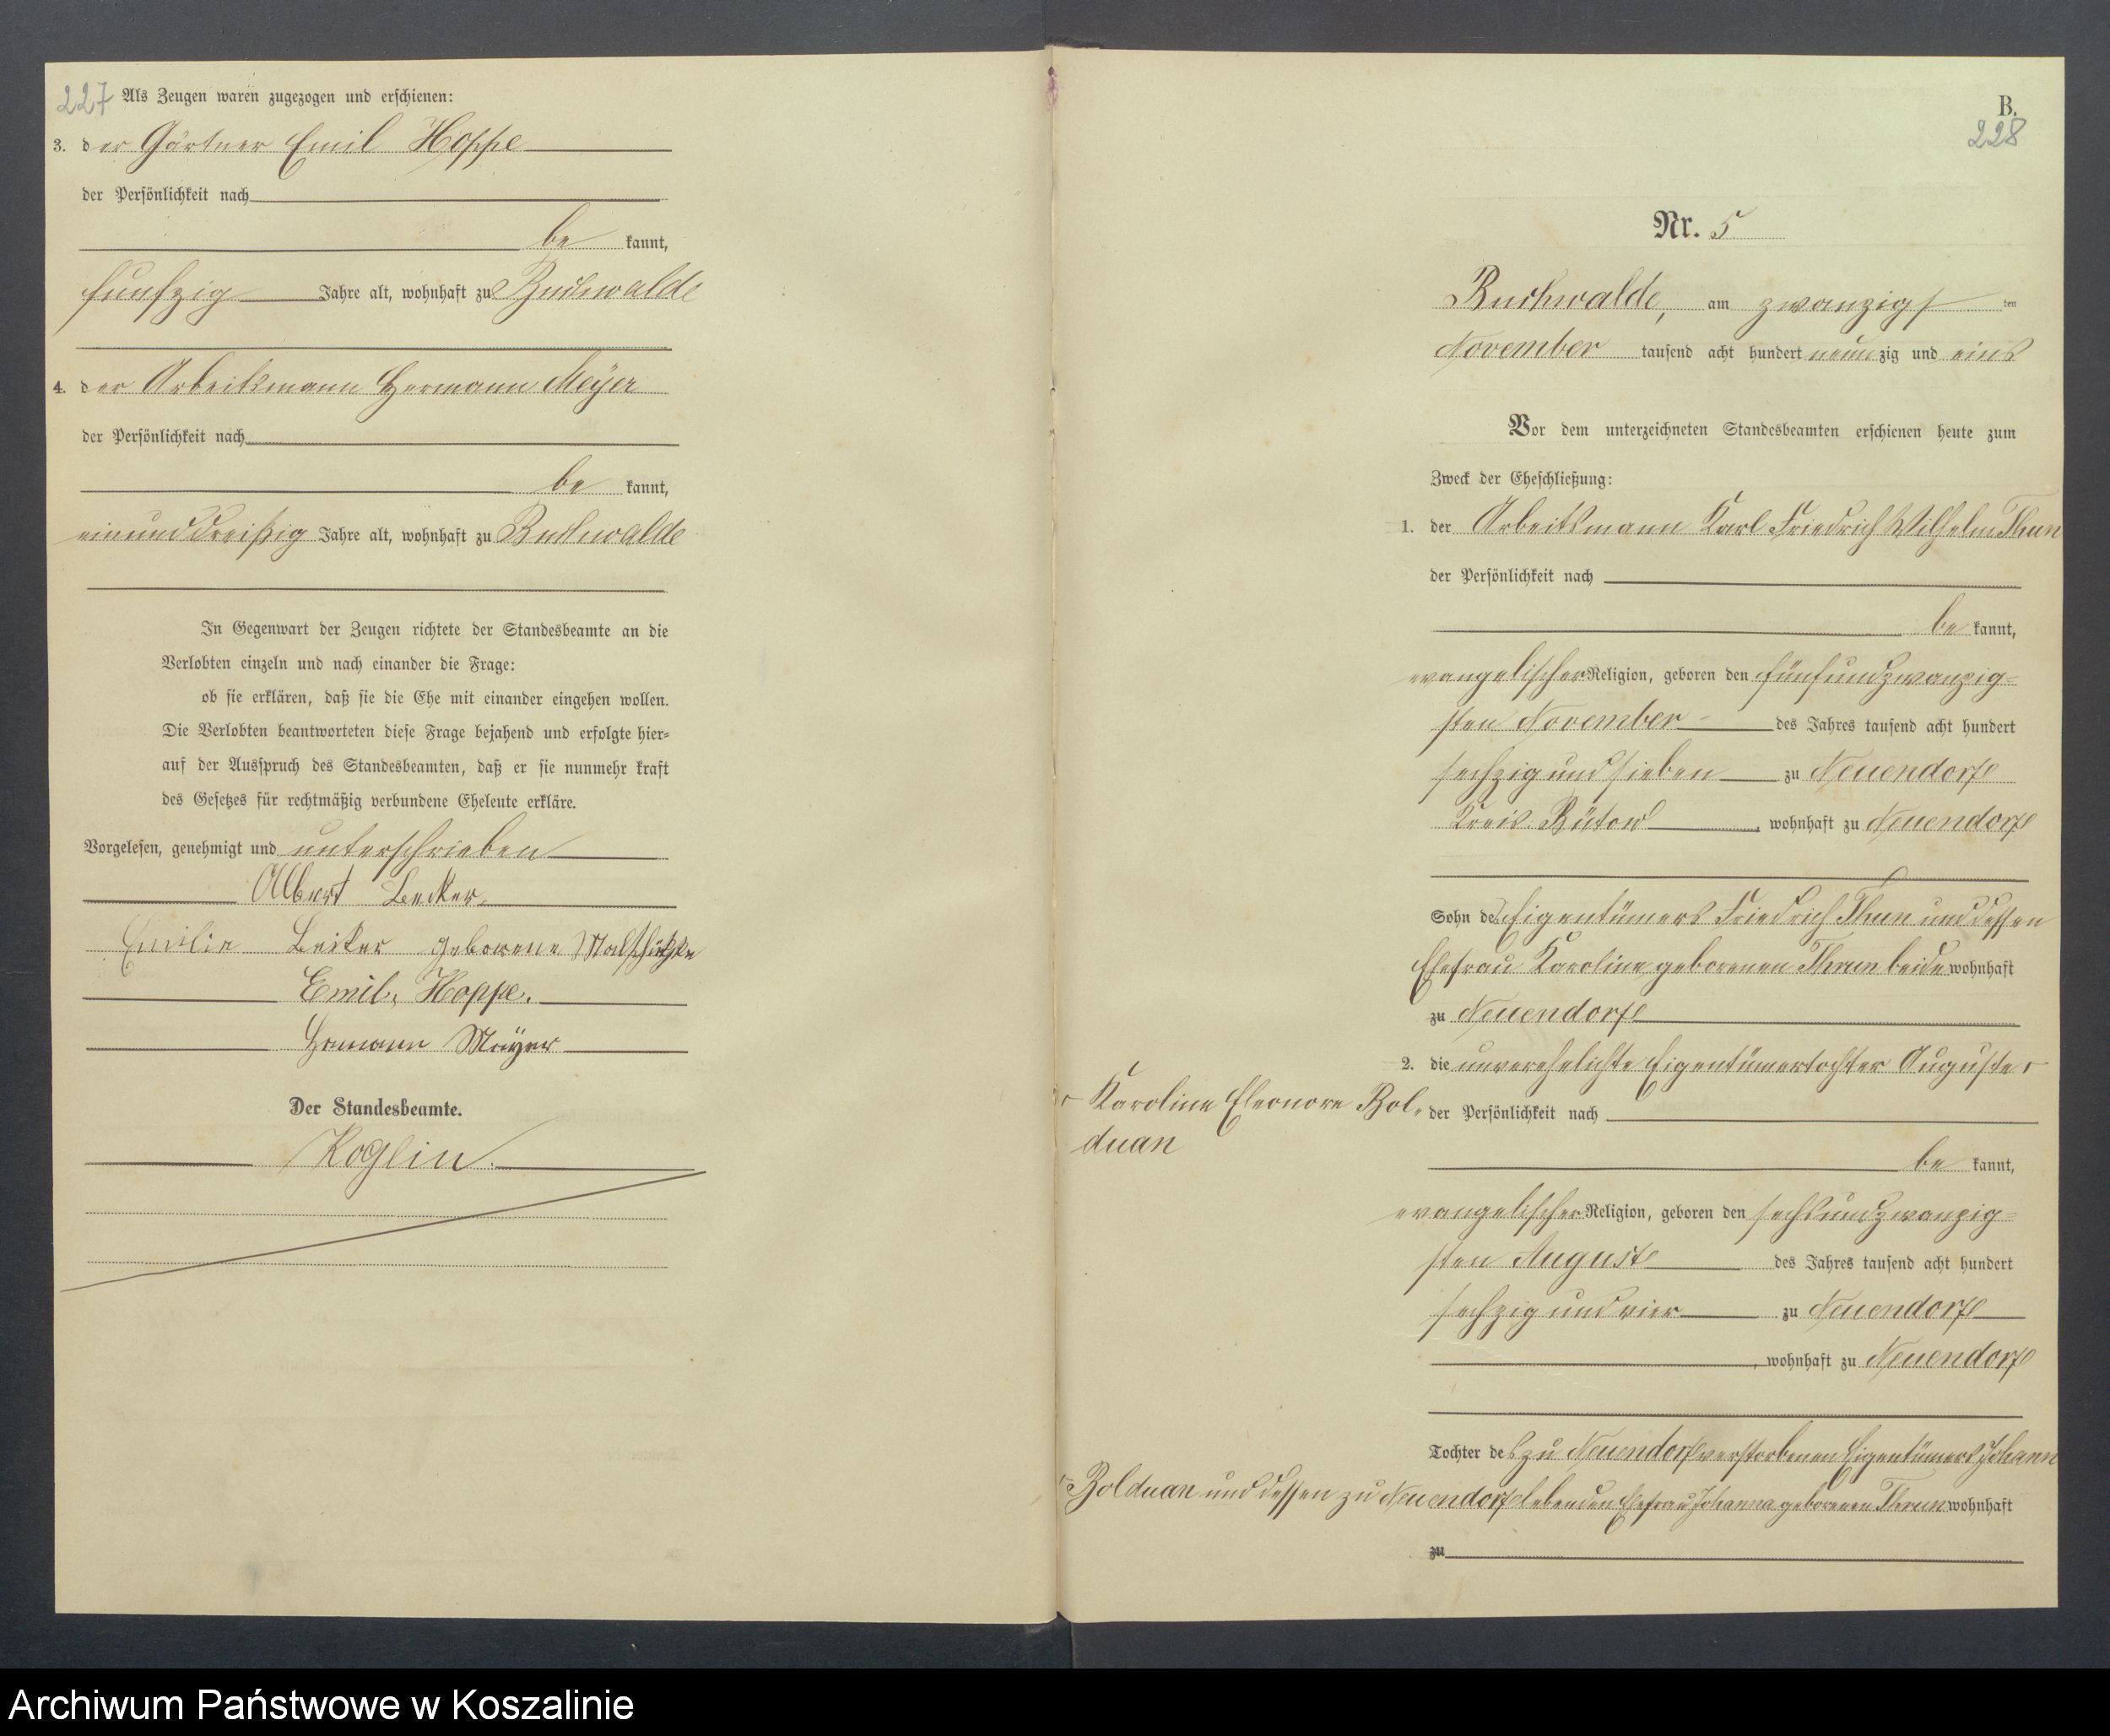 227 Als Zeugen waren zugezogen und erschienen:
3. der Gärtner Emil Hoppe
der Persönlichkeit nach
be kannt,
funfzig Jahre alt, wohnhaft zu Buchwalde
4. der Arbeitsmann Hermann Meÿer
der Persönlichkeit nach
be kannt,
einunddreißig Jahre alt, wohnhaft zu Buchwalde
In Gegenwart der Zeugen richtete der Standesbeamte an die
Verlobten einzeln und nach einander die Frage:
ob sie erklären, daß sie die Ehe mit einander eingehen wollen.
Die Verlobten beantworteten diese Frage bejahend und erfolgte hier-
auf der Ausspruch des Standesbeamten, daß er sie nunmehr kraft
des Gesetzes für rechtmäßig verbundene Eheleute erkläre.
Vorgelesen, genehmigt und unterschrieben
Albert Becker
Emilie Becker geborene
Emil Hoppe.
Hermann Meÿer
Der Standesbeamte.
Koglin.
B.
228
Nr. 5
Buchwalde, am zwanzigs ten
November tausend acht hundert neunzig und eins
Vor dem unterzeichneten Standesbeamten erschienen heute zum
Zweck der Eheschließung:
1. der Arbeitsmann Karl Friedrich Wilhelm Thun
der Persönlichkeit nach
be kannt,
evangelischer Religion, geboren den fünfundzwanzig-
sten November des Jahres tausend acht hundert
sechzig und sieben zu Neuendorf
Kreis Bütow, wohnhaft zu Neuendorf
Sohn des Eigentümers Friedrich Thun und dessen
Ehefrau Karoline geborenen Thrun beide wohnhaft
zu Neuendorf
2. die unverehelichte Eigentümertochter Auguste
Karoline Eleonore Bol-
duan
der Persönlichkeit nach
be kannt,
evangelischer Religion, geboren den sechsundzwanzig-
sten August des Jahres tausend acht hundert
sechzig und vier zu Neuendorf
, wohnhaft zu Neuendorf
Tochter des zu Neuendorf verstorbenen Eigentümers Johann
Bolduan und dessen zu Neuendorf lebenden Ehefrau Johanna geborenen Thrun wohnhaft
zu
Archiwum Państwowe w Koszalinie